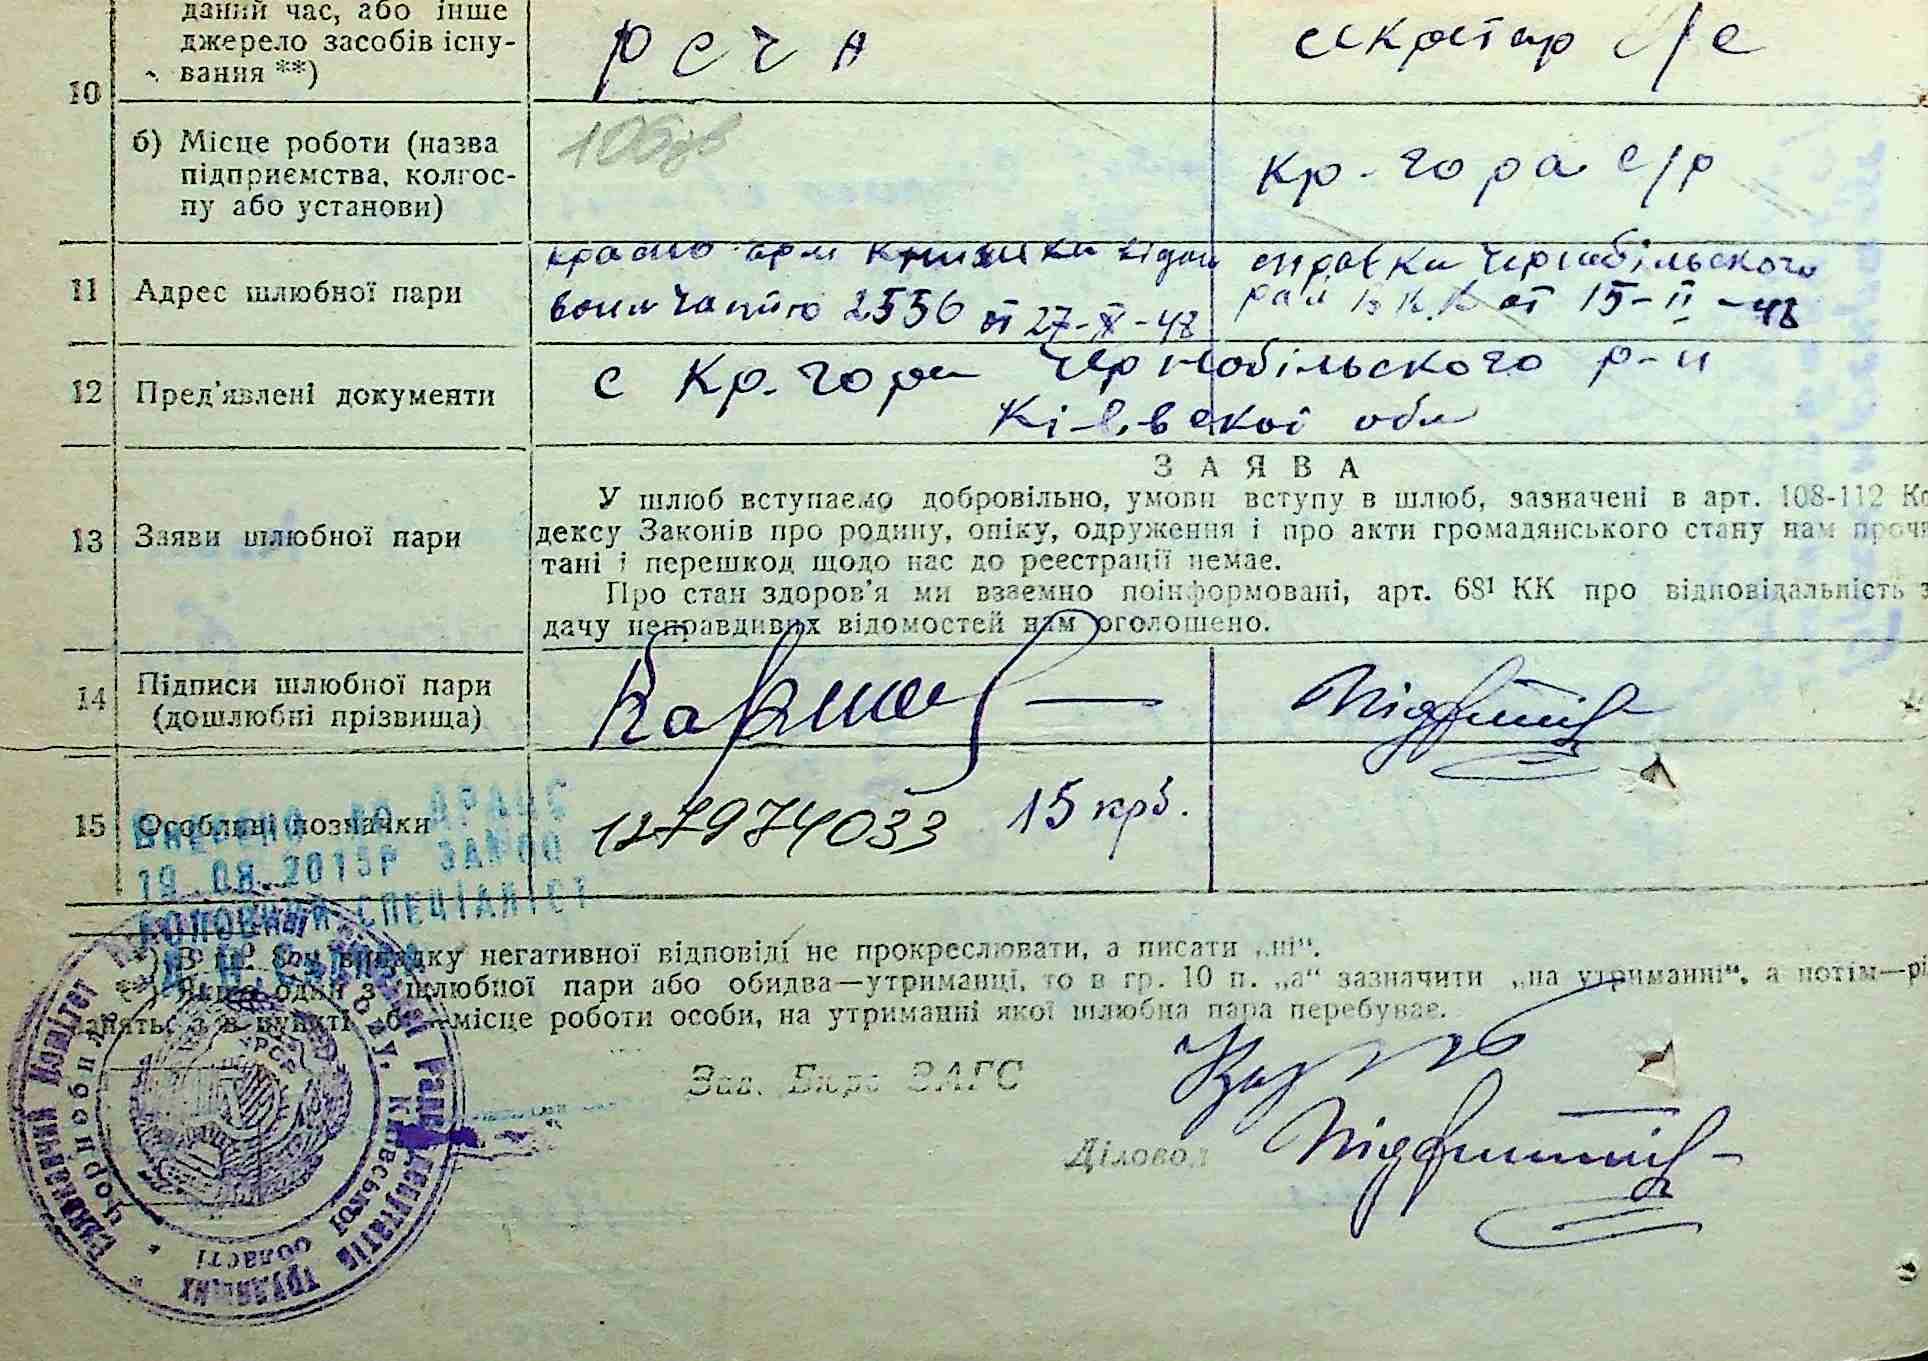 даний час, або інше
джерело засобів існу-
вання **)
10
секретар с/с
б) Місце роботи (назва
підприємства, колгос-
пу або установи)
Кр-гора с/р
11 Адрес шлюбної пари
красно арм книжка видан
воин частю 2556 от 27-X-47
справки Чернобільского
рай В.К.К от 15-II-48
12 Пред'явлені документи
с Кр-гора Чернобільского р-н
Кі-івскоі обл
13 Заяви шлюбної пари
ЗАЯВА
У шлюб вступаємо добровільно, умови вступу в шлюб, зазначені в арт. 108-112 Ко
дексу Законів про родину, опіку, одруження і про акти громадянського стану нам прочи
тані і перешкод щодо нас до реєстрації немає.
Про стан здоров'я ми взаємно поінформовані, арт. 68¹ КК про відповідальність з
дачу неправдивих відомостей нам оголошено.
14 Підписи шлюбної пари
(дошлюбні прізвища)
15 Особливі позначки
127974033 15 крб.
ВНЕСЕНО ДО ДРАЦС
19.08.2015Р
ГОЛОВНИЙ СПЕЦІАЛІСТ
*) В разі випадку негативної відповіді не прокреслювати, а писати „ні“.
**) Якщо один з шлюбної пари або обидва—утриманці, то в гр. 10 п. „а“ зазначити „на утриманні“, а потім—рі
місце роботи особи, на утриманні якої шлюбна пара перебуває.
Зав. Бюро ЗАГС
Діловод
Виконавчий Комітет
Ради депутатів трудящих
Київської області